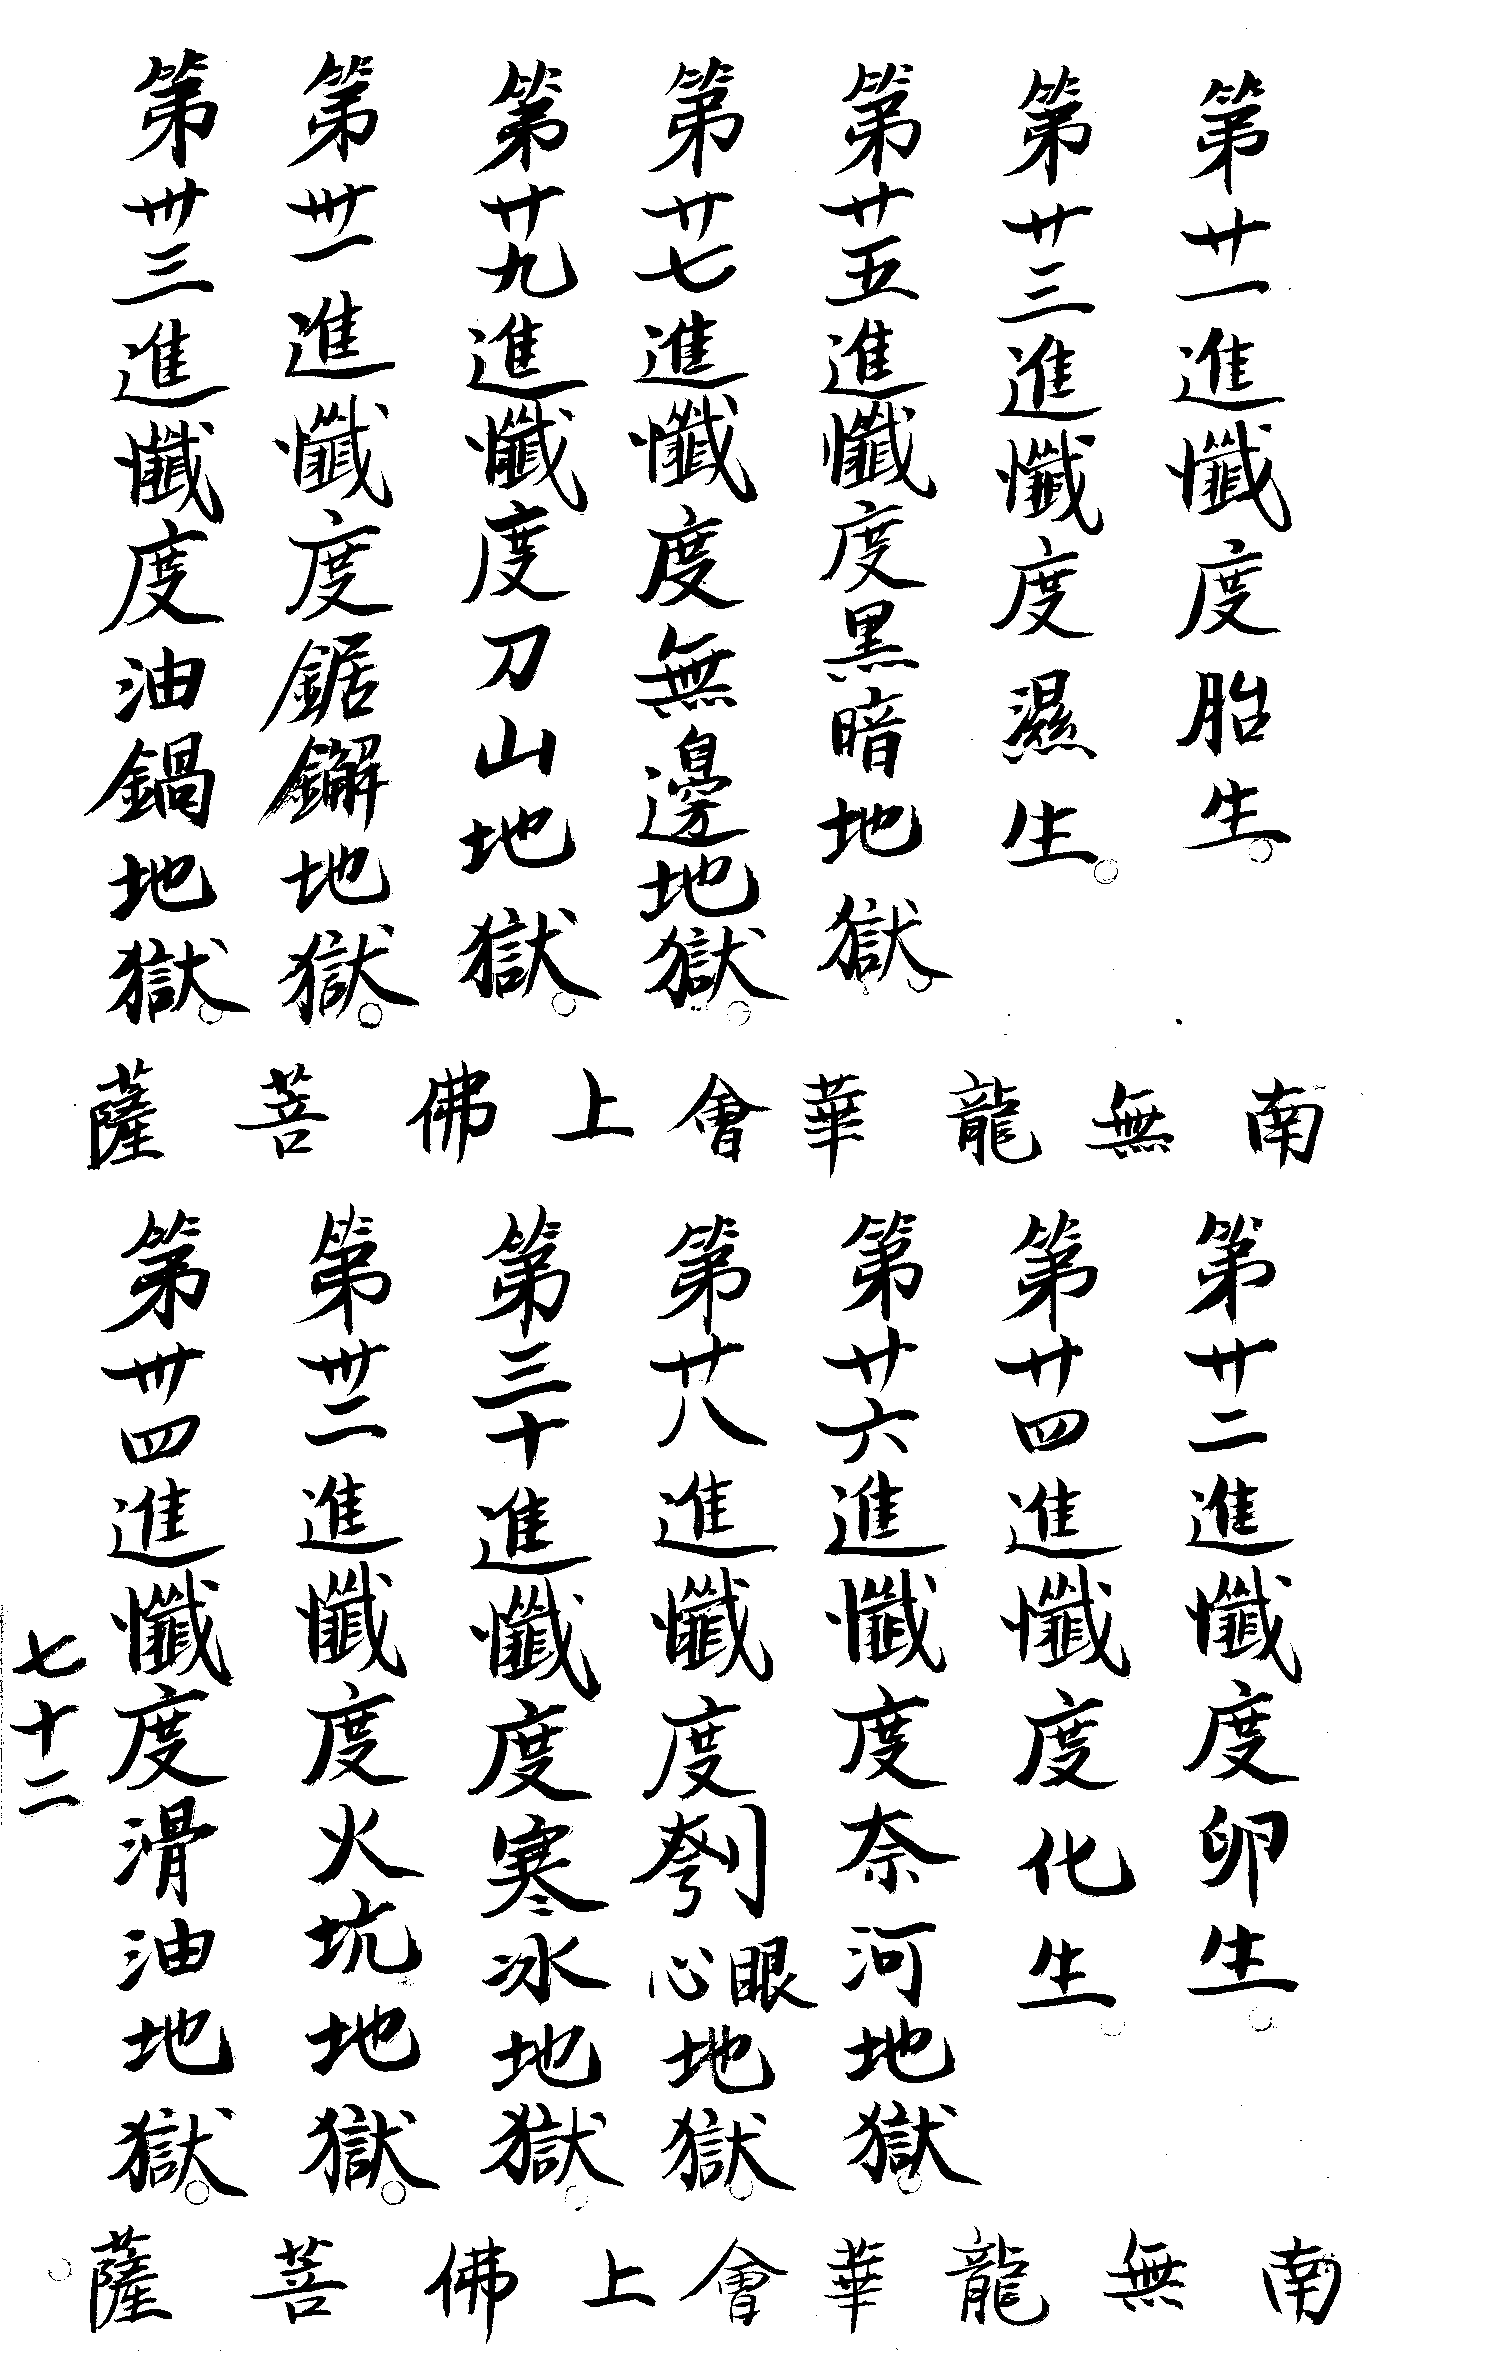 第廿一進懺度胎生。
第廿三進懺度濕生。
第廿五進懺度黑暗地獄。
第廿七進懺度無邊地獄。
第廿九進懺度刀山地獄。
第卅一進懺度鋸鐗地獄。
第卅三進懺度油鍋地獄。
南無龍華會上佛菩薩
第廿二進懺度卵生。
第廿四進懺度化生。
第廿六進懺度奈河地獄。
第廿八進懺度刳眼心地獄。
第三十進懺度寒冰地獄。
第卅二進懺度火坑地獄。
第卅四進懺度滑油地獄。
南無龍華會上佛菩薩。
七十二